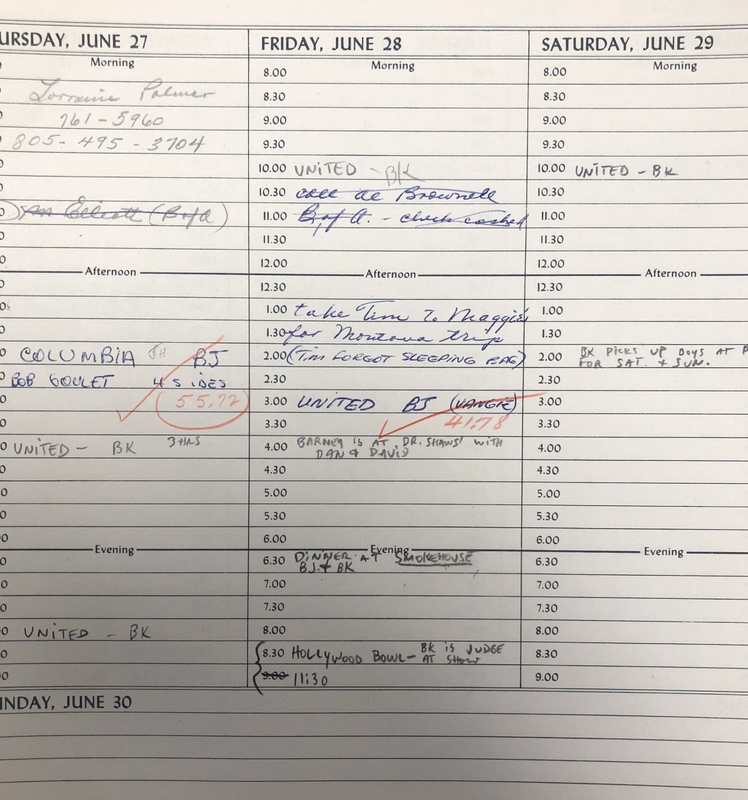 URSDAY, JUNE 27
Morning
Lorraine Palmer
761-5960
805-495-3704
(B of A)
Afternoon
COLUMBIA BJ
BOB GOULET 4 SIDES
55.72
UNITED - BK 3 HRS
Evening
UNITED - BK
NDAY, JUNE 30
FRIDAY, JUNE 28
Morning
8.00
8.30
9.00
9.30
10.00 UNITED - BK
10.30 call Al Brownell
11.00 B of A. - check cashed
11.30
12.00
Afternoon
12.30
1.00 take Tim To Maggie's
1.30 for Montana trip
2.00 (TIM FORGOT SLEEPING BAG)
2.30
3.00 UNITED BJ (VANGIE)
3.30 41.78
4.00 BARNEY IS AT DR. SHAWS' WITH
DAN & DAVID
4.30
5.00
5.30
6.00
Evening
6.30 DINNER AT SMOKEHOUSE
BJ & BK
7.00
7.30
8.00
8.30 HOLLYWOOD BOWL - BK IS JUDGE
AT SHOW
9.00 11:30
SATURDAY, JUNE 29
Morning
8.00
8.30
9.00
9.30
10.00 UNITED - BK
10.30
11.00
11.30
12.00
Afternoon
12.30
1.00
1.30
2.00 BK PICKS UP BOYS AT
FOR SAT. & SUN.
2.30
3.00
3.30
4.00
4.30
5.00
5.30
6.00
Evening
6.30
7.00
7.30
8.00
8.30
9.00